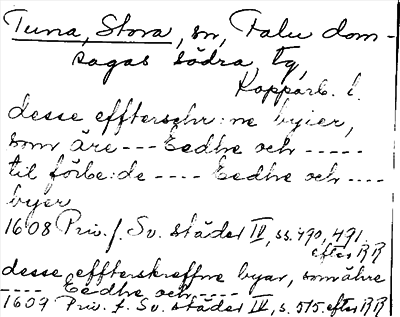 Tuna, Stora, sn, Falu dom-
sagas södra tg,
Kopparb. l.
desse efftersehr:ne byier,
som äre --- Eedhe och -----
til förbe:de ---- Eedhe och ----
byer
1608 Priv. f. Sv. städer IV, ss. 490, 491,
efter RR
desse effterskreffne byar, som ähre
---- Eedhe och ----
1609 Priv. f. Sv. städer IV, s. 515, efter RR